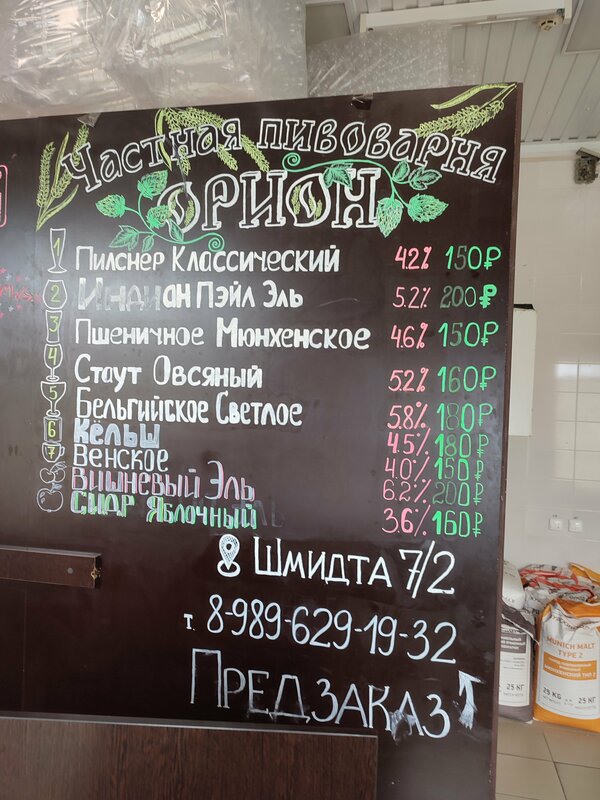 Частная пивоварня
ОРИОН
1 Пилснер Классический 4.2% 150₽
2 Индиан Пэйл Эль 5.2% 200₽
3 Пшеничное Мюнхенское 4.6% 150₽
4 Стаут Овсяный 5.2% 160₽
5 Бельгийское Светлое 5.8% 180₽
6 Кёльш 4.5% 180₽
7 Венское 4.0% 150₽
Вишневый Эль 6.2% 200₽
Сидр Яблочный 3.6% 160₽
Шмидта 7/2
т. 8-989-629-19-32
Предзаказ
MUNICH MALT
TYPE 2
25 KG
25 КГ
25 КГ